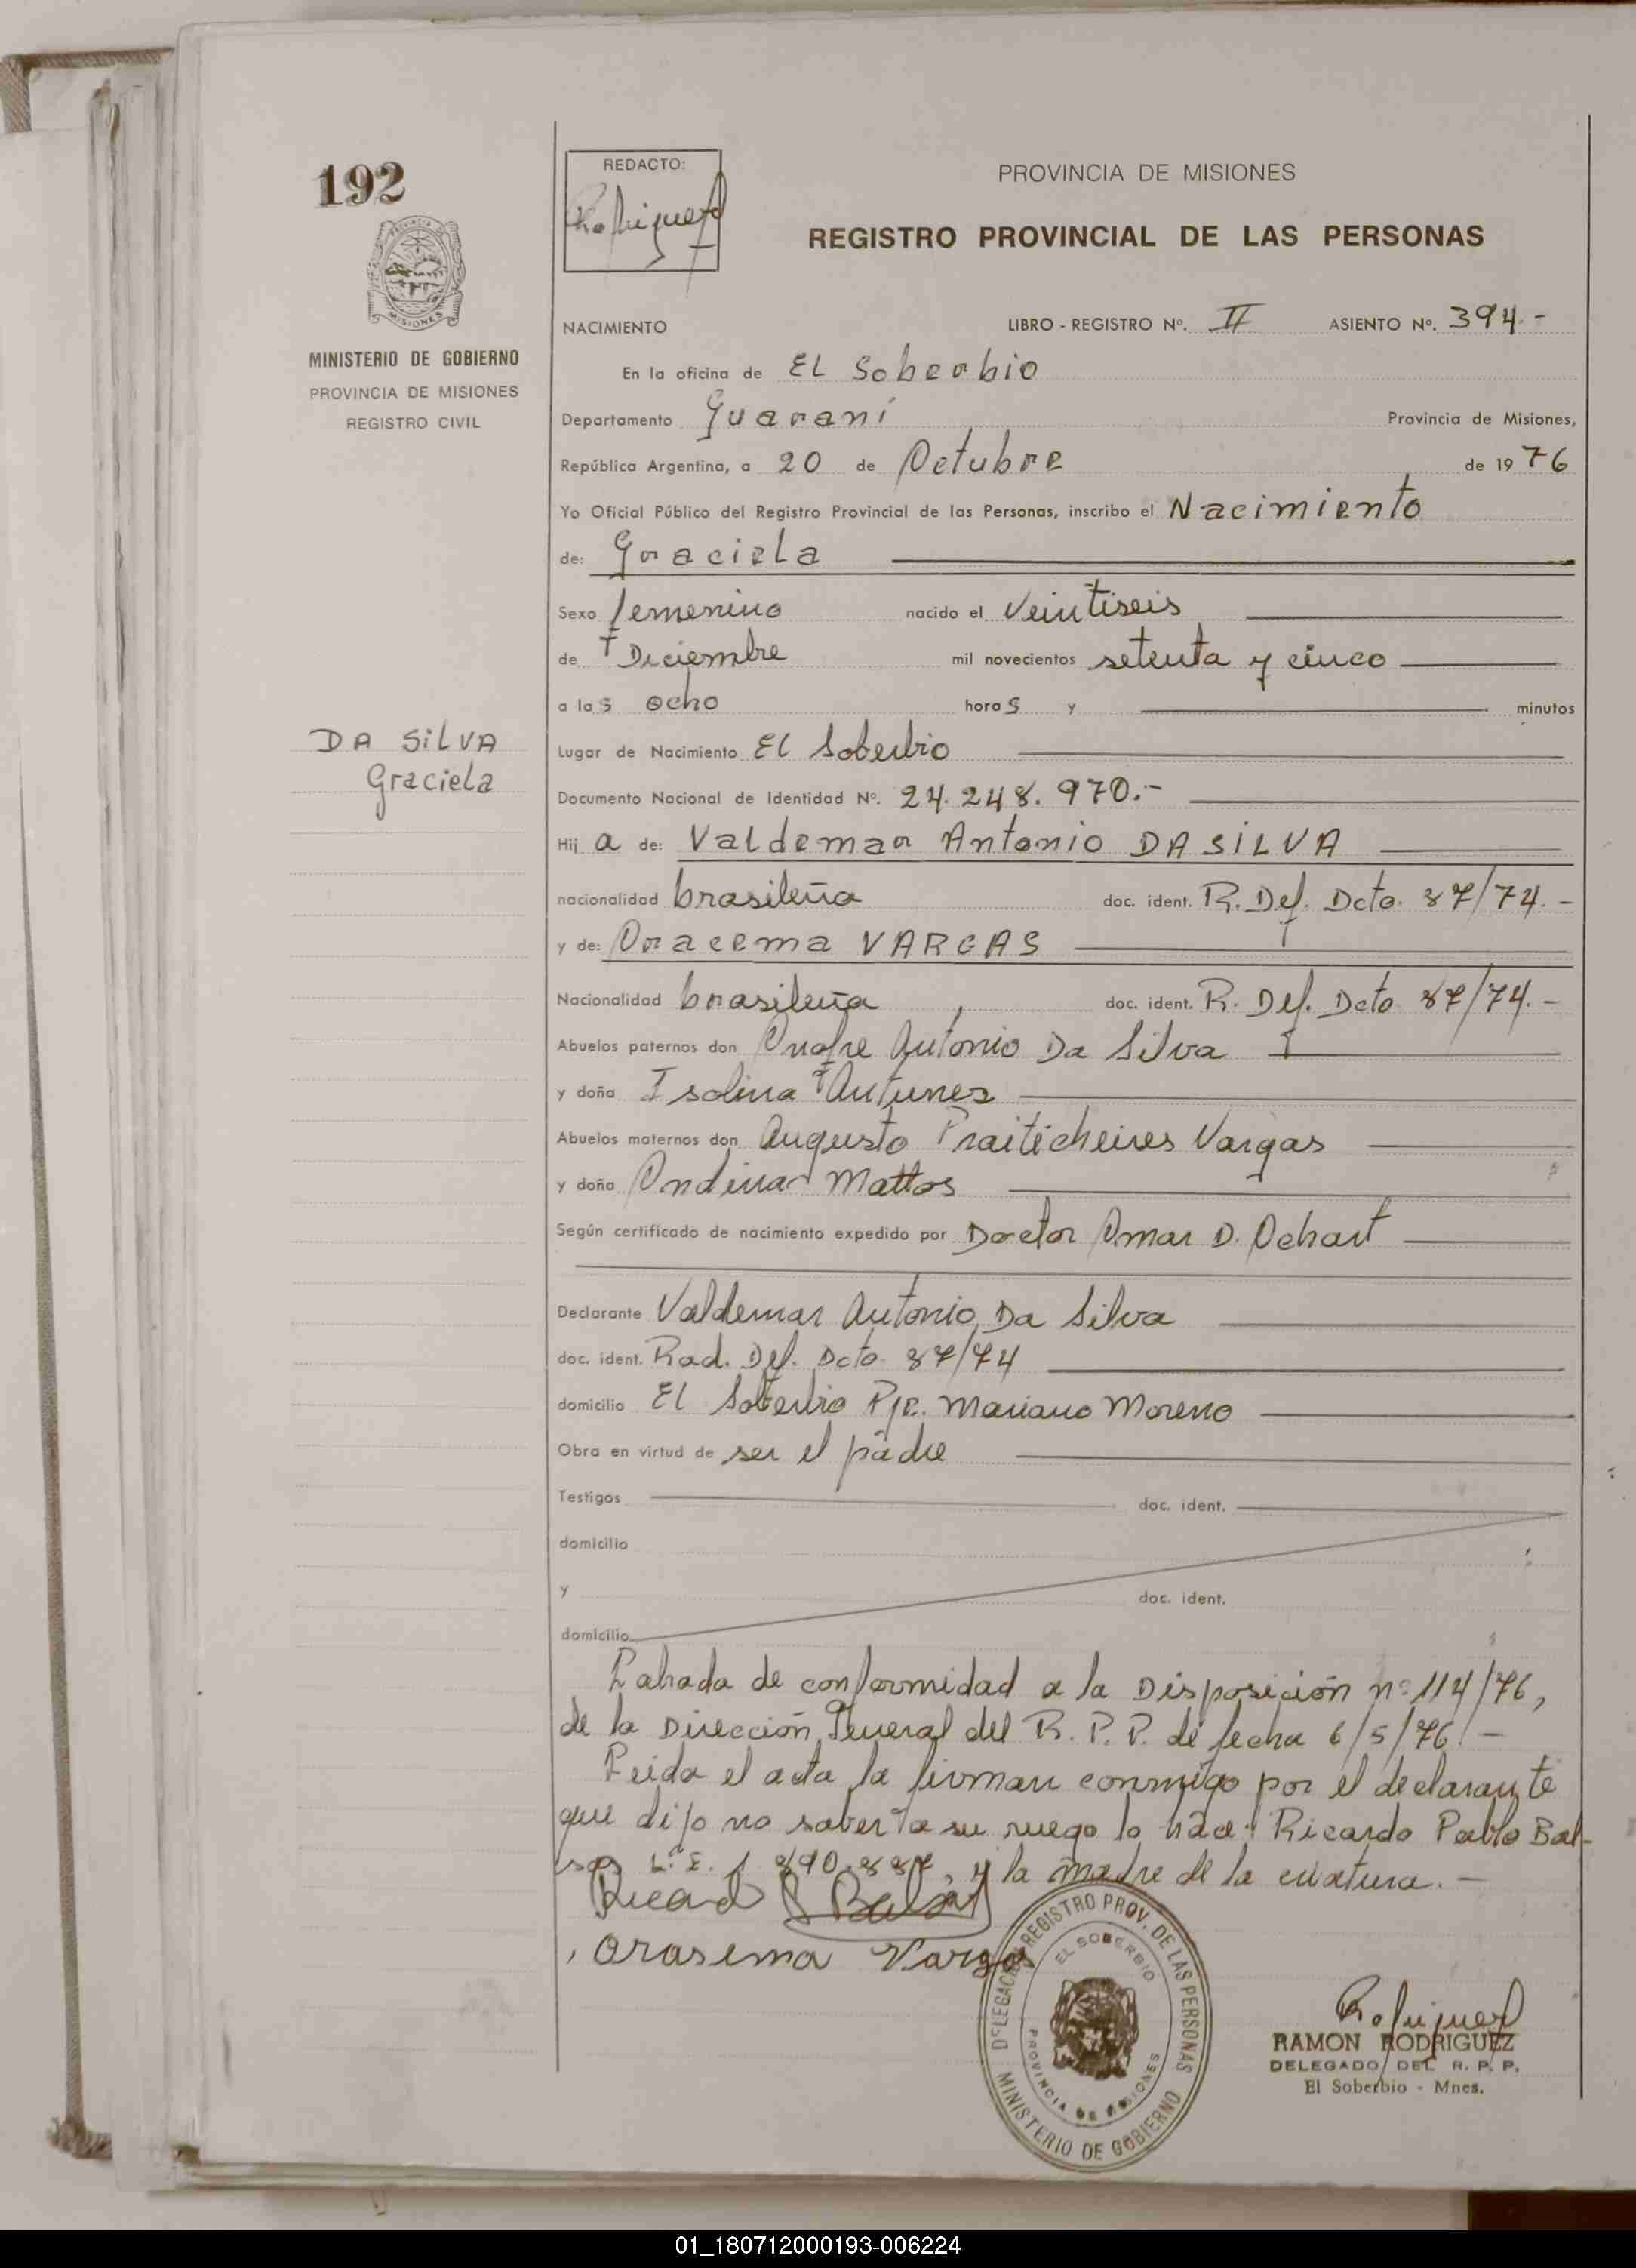 192
REDACTO:
PROVINCIA DE MISIONES
REGISTRO PROVINCIAL DE LAS PERSONAS
MISIONES
MINISTERIO DE GOBIERNO
PROVINCIA DE MISIONES
REGISTRO CIVIL
NACIMIENTO LIBRO - REGISTRO Nº. II ASIENTO Nº. 394.-
En la oficina de EL Soberbio
Departamento Guaraní Provincia de Misiones,
República Argentina, a 20 de Octubre de 1976
Yo Oficial Público del Registro Provincial de las Personas, inscribo el Nacimiento
de: Graciela
Sexo femenino nacido el Veintiseis
de Diciembre mil novecientos setenta y cinco
a las ocho horas y minutos
DA SiLVA
Graciela
Lugar de Nacimiento El Soberbio
Documento Nacional de Identidad Nº. 24.248.970.-
Hija de: Valdemar Antonio DA SiLVA
nacionalidad brasileña doc. ident. R. Def. Dcto. 87/74.-
y de: Oracema VARGAS
Nacionalidad brasileña doc. ident. R. Def. Dcto 87/74.-
Abuelos paternos don Onofre Antonio Da Silva
y doña Isolina Antunes
Abuelos maternos don Augusto Vargas
y doña Ondina Mattos
Según certificado de nacimiento expedido por Doctor Omar D. Ochart
Declarante Valdemar Antonio Da Silva
doc. ident. Rad. Def. Dcto. 87/74
domicilio El Soberbio Pje. Mariano Moreno
Obra en virtud de ser el padre
Testigos doc. ident.
domicilio
y doc. ident.
domicilio
Labrada de conformidad a la Disposición nº 114/76,
de la Dirección General del R. P. P. de fecha 6/5/76.-
Leida el acta la firman conmigo por el declarante
que dijo no saber a su ruego lo hace: Ricardo Pablo Bal-
L. E. y la madre de la criatura.-
Orasema Vargas
DELEGACION REGISTRO PROV. DE LAS PERSONAS
EL SOBERBIO
PROVINCIA DE MISIONES
MINISTERIO DE GOBIERNO
RAMON RODRIGUEZ
DELEGADO DEL R. P. P.
El Soberbio - Mnes.
01_180712000193-006224